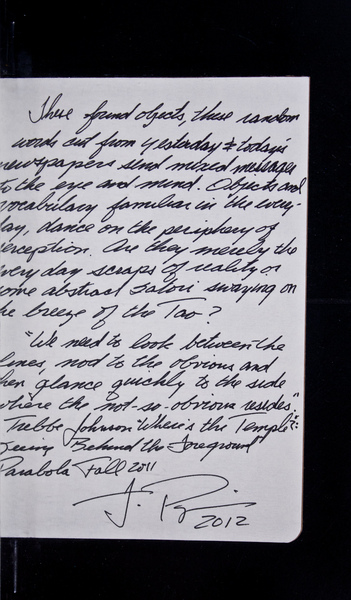 These found objects, these random
words cut from yesterday & todays
newspapers send mixed messages
to the eye and mind. Objects and
vocabulary familiar in the every-
day, dance on the periphery of
perception. Are they merely the
every day scraps of reality or
some abstract satori swaying on
the breeze of the Tao?
"We need to look between the
lines, nod to the obvious and
then glance quickly to the side
where the not-so-obvious resides".
Trebbe Johnson "Where's the Temple?":
Seeing Behind the Foreground"
Parabola Fall 2011
2012